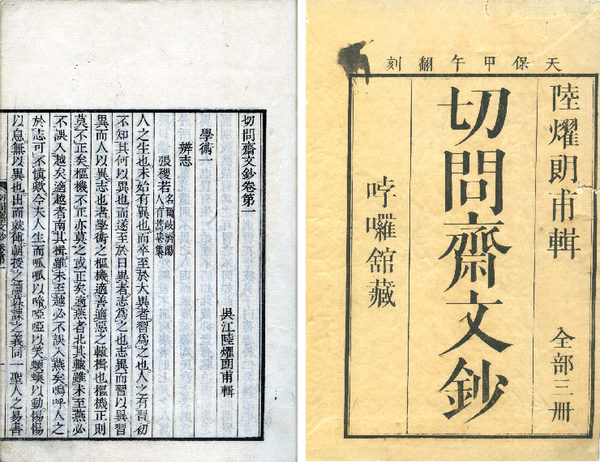 天保甲午翻刻
陸燿朗甫輯 全部三冊
切問齋文鈔
哱囉舘藏
切問齋文鈔卷第一
吳江陸燿朗甫輯
學術一
辨志
張稷若 名爾岐濟陽人有蒿菴集
人之生也未始有異也而卒至於大異者習為之也人之有習初
不知其何以異也而遂至於日異者志為之也志異而習以異習
異而人以異志也者學術之樞機適善適惡之轅楫也樞機正則
莫不正矣樞機不正亦莫之或正矣適燕者北其轅雖未至燕必
不誤入越矣適越者南其楫雖未至越必不誤入燕矣嗚呼人之
於志可不慎歟今夫人生而呱呱以啼啞啞以笑蝡蝡以動惕惕
以息無以異也出而就傅朝授之讀暮課之義同一聖人之易書